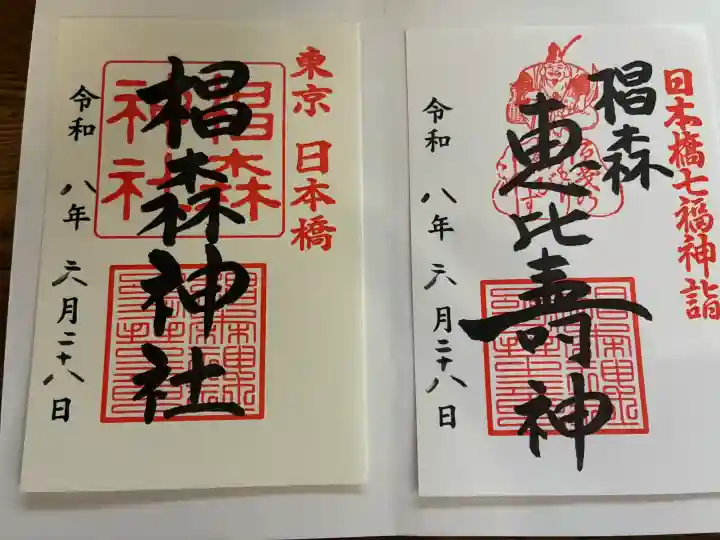 東京 日本橋
椙森神社
椙森神社
令和 八年 六月二十八日
日本橋七福神詣
椙森
恵比寿神
令和 八年 六月二十八日